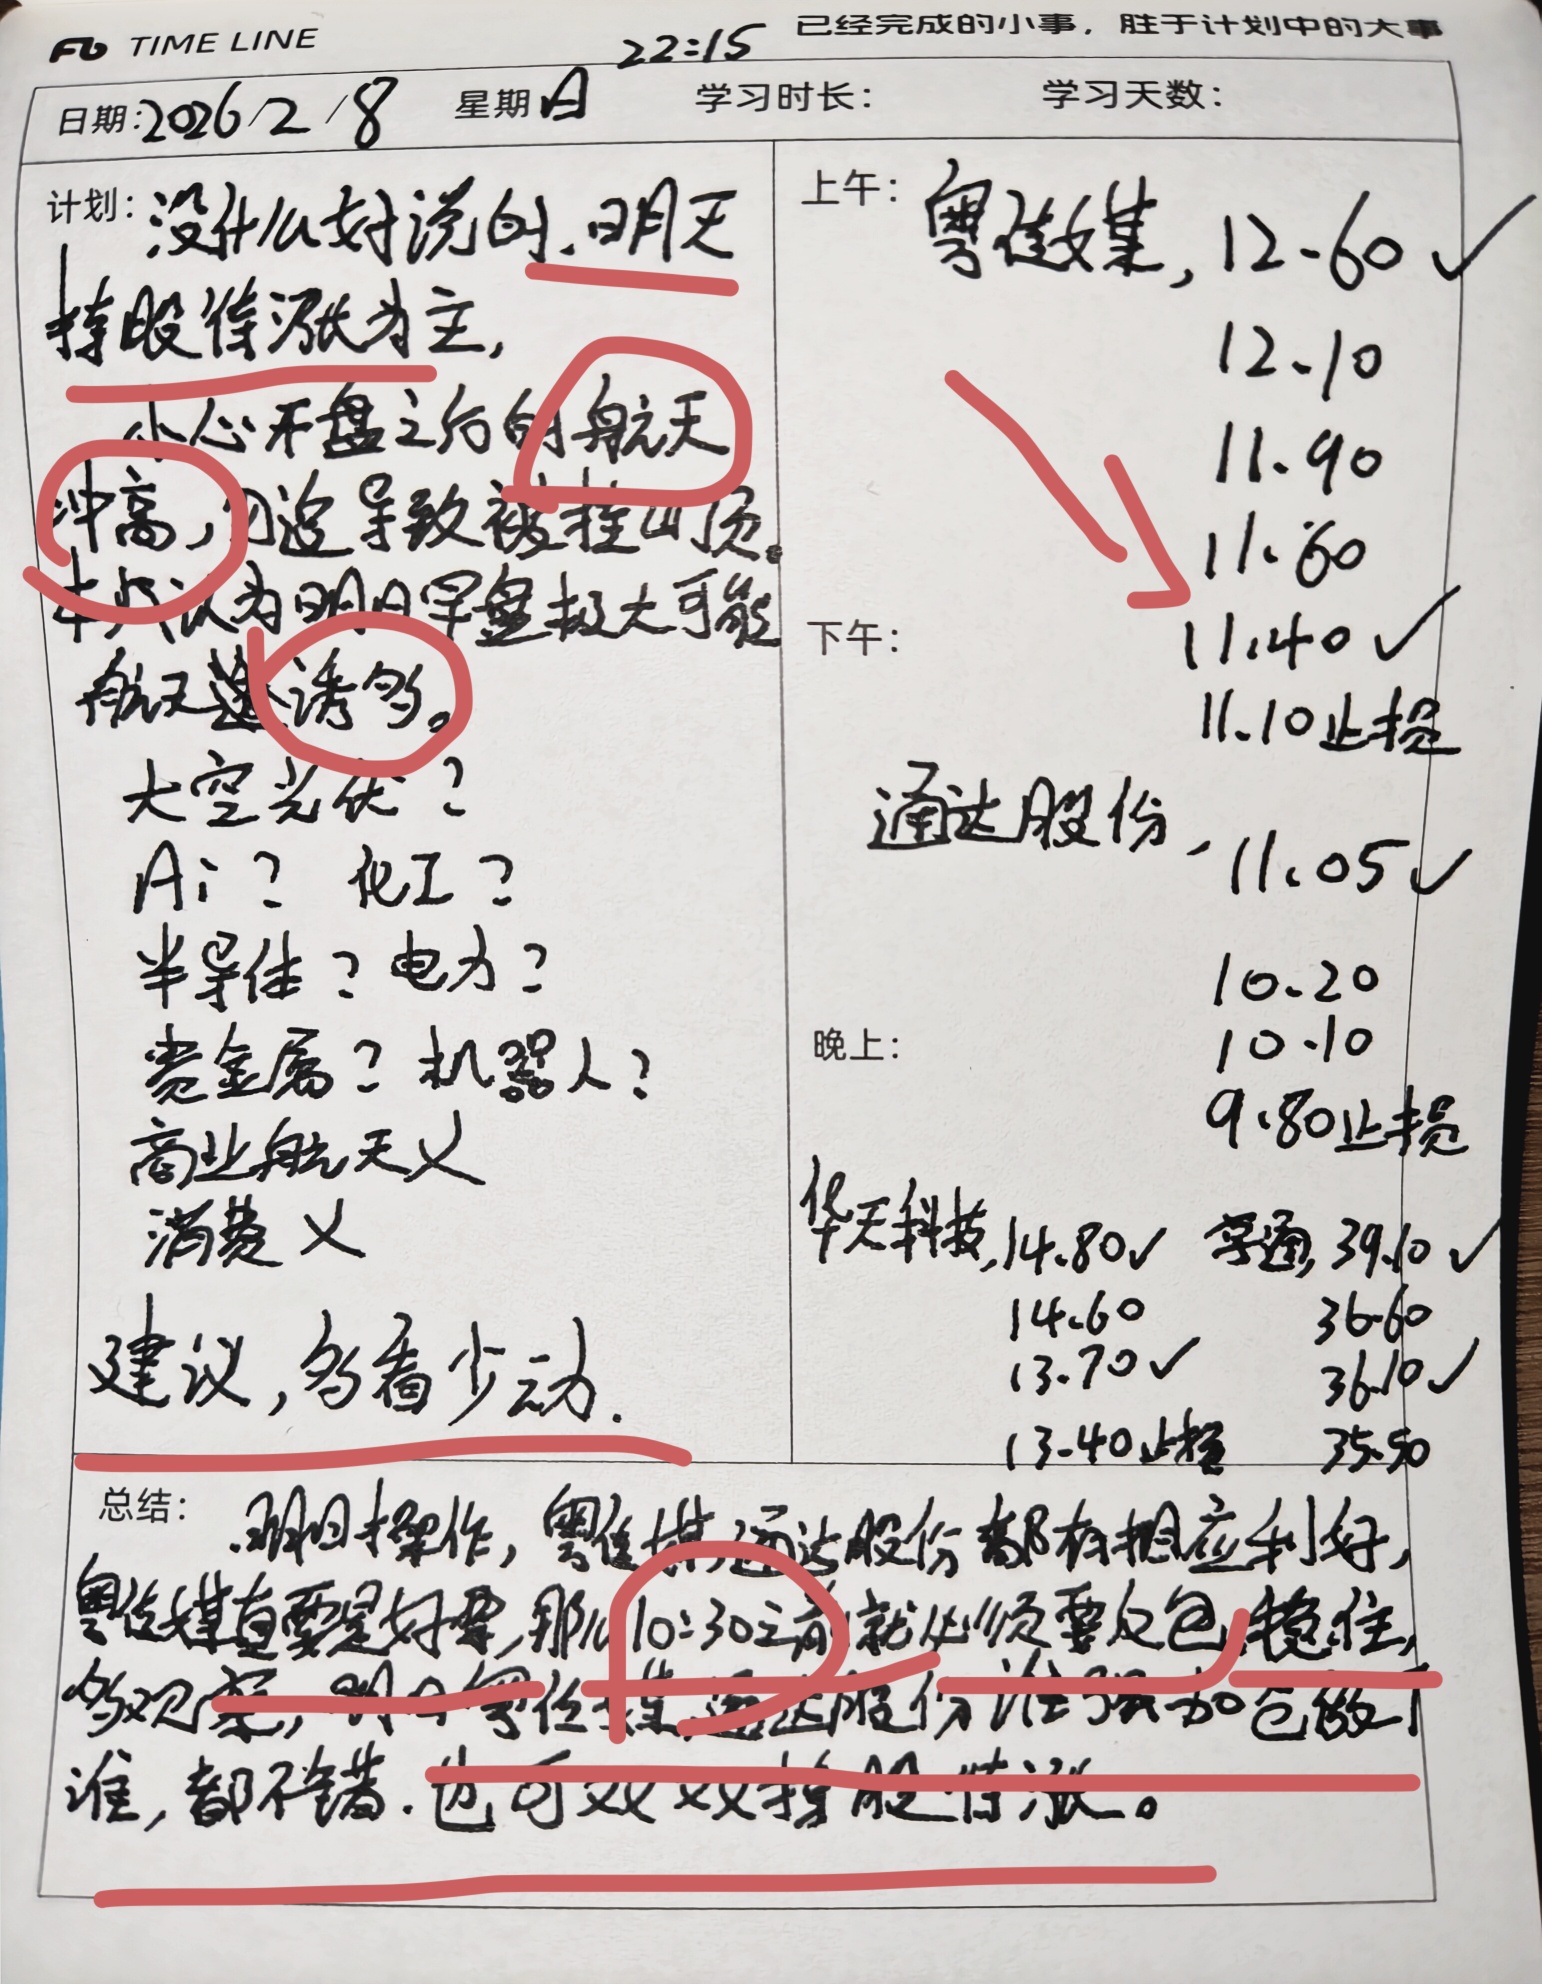 TIME LINE
22:15
已经完成的小事，胜于计划中的大事
日期：2026/2/8
星期日
学习时长：
学习天数：
计划：没什么好说的.明天
持股待涨为主，
小心开盘之后的航天
冲高，勿追导致被挂山顶。
本人认为明日早盘极大可能
航天是诱多。
太空光伏？
Ai？ 化工？
半导体？电力？
贵金属？机器人？
商业航天㐅
消费㐅
建议，多看少动.
上午：
粤传媒，12.60✓
12.10
11.90
11.60
下午：
11.40✓
11.10止损
通达股份，11.05✓
10.20
10.10
晚上：
9.80止损
华天科技，14.80✓
14.60
13.70✓
13.40止损
孚通，39.10✓
36.60
36.10✓
35.50
总结：明日操作，粤传媒，通达股份都有相应利好，
粤传媒真要是好票，那么10:30之前就必须要反包，稳住，
多观察，明日粤传媒，通达股份谁强加仓做T
谁，都不错.也可双双持股待涨。